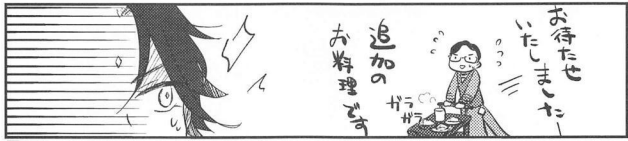 お待たせ
いたしましたー
追加の
お料理です
ガラ
ガラ